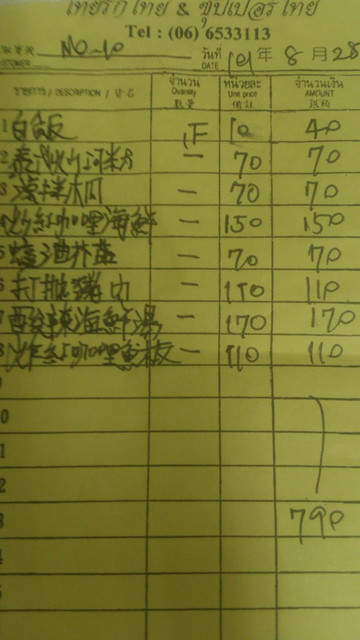 ไทยรักไทย & ซุปเปอร์ไทย
Tel : (06) 6533113
NO-10 วันที่ DATE 101 年 8 月 28
รายการ / DESCRIPTION / 品名 จำนวน Quantity 數量 หน่วยละ Unit price 價位 จำนวนเงิน AMOUNT 金額
1 白飯 正 10 40
2 泰式炒河粉 一 70 70
3 涼拌木瓜 一 70 70
4 炒紅咖哩海鮮 一 150 150
5 蠔油芥藍 一 70 70
6 打拋豬肉 一 110 110
7 酸辣海鮮湯 一 170 170
8 炸紅咖哩魚板 一 110 110
9
0
1
2
3 790
4
5